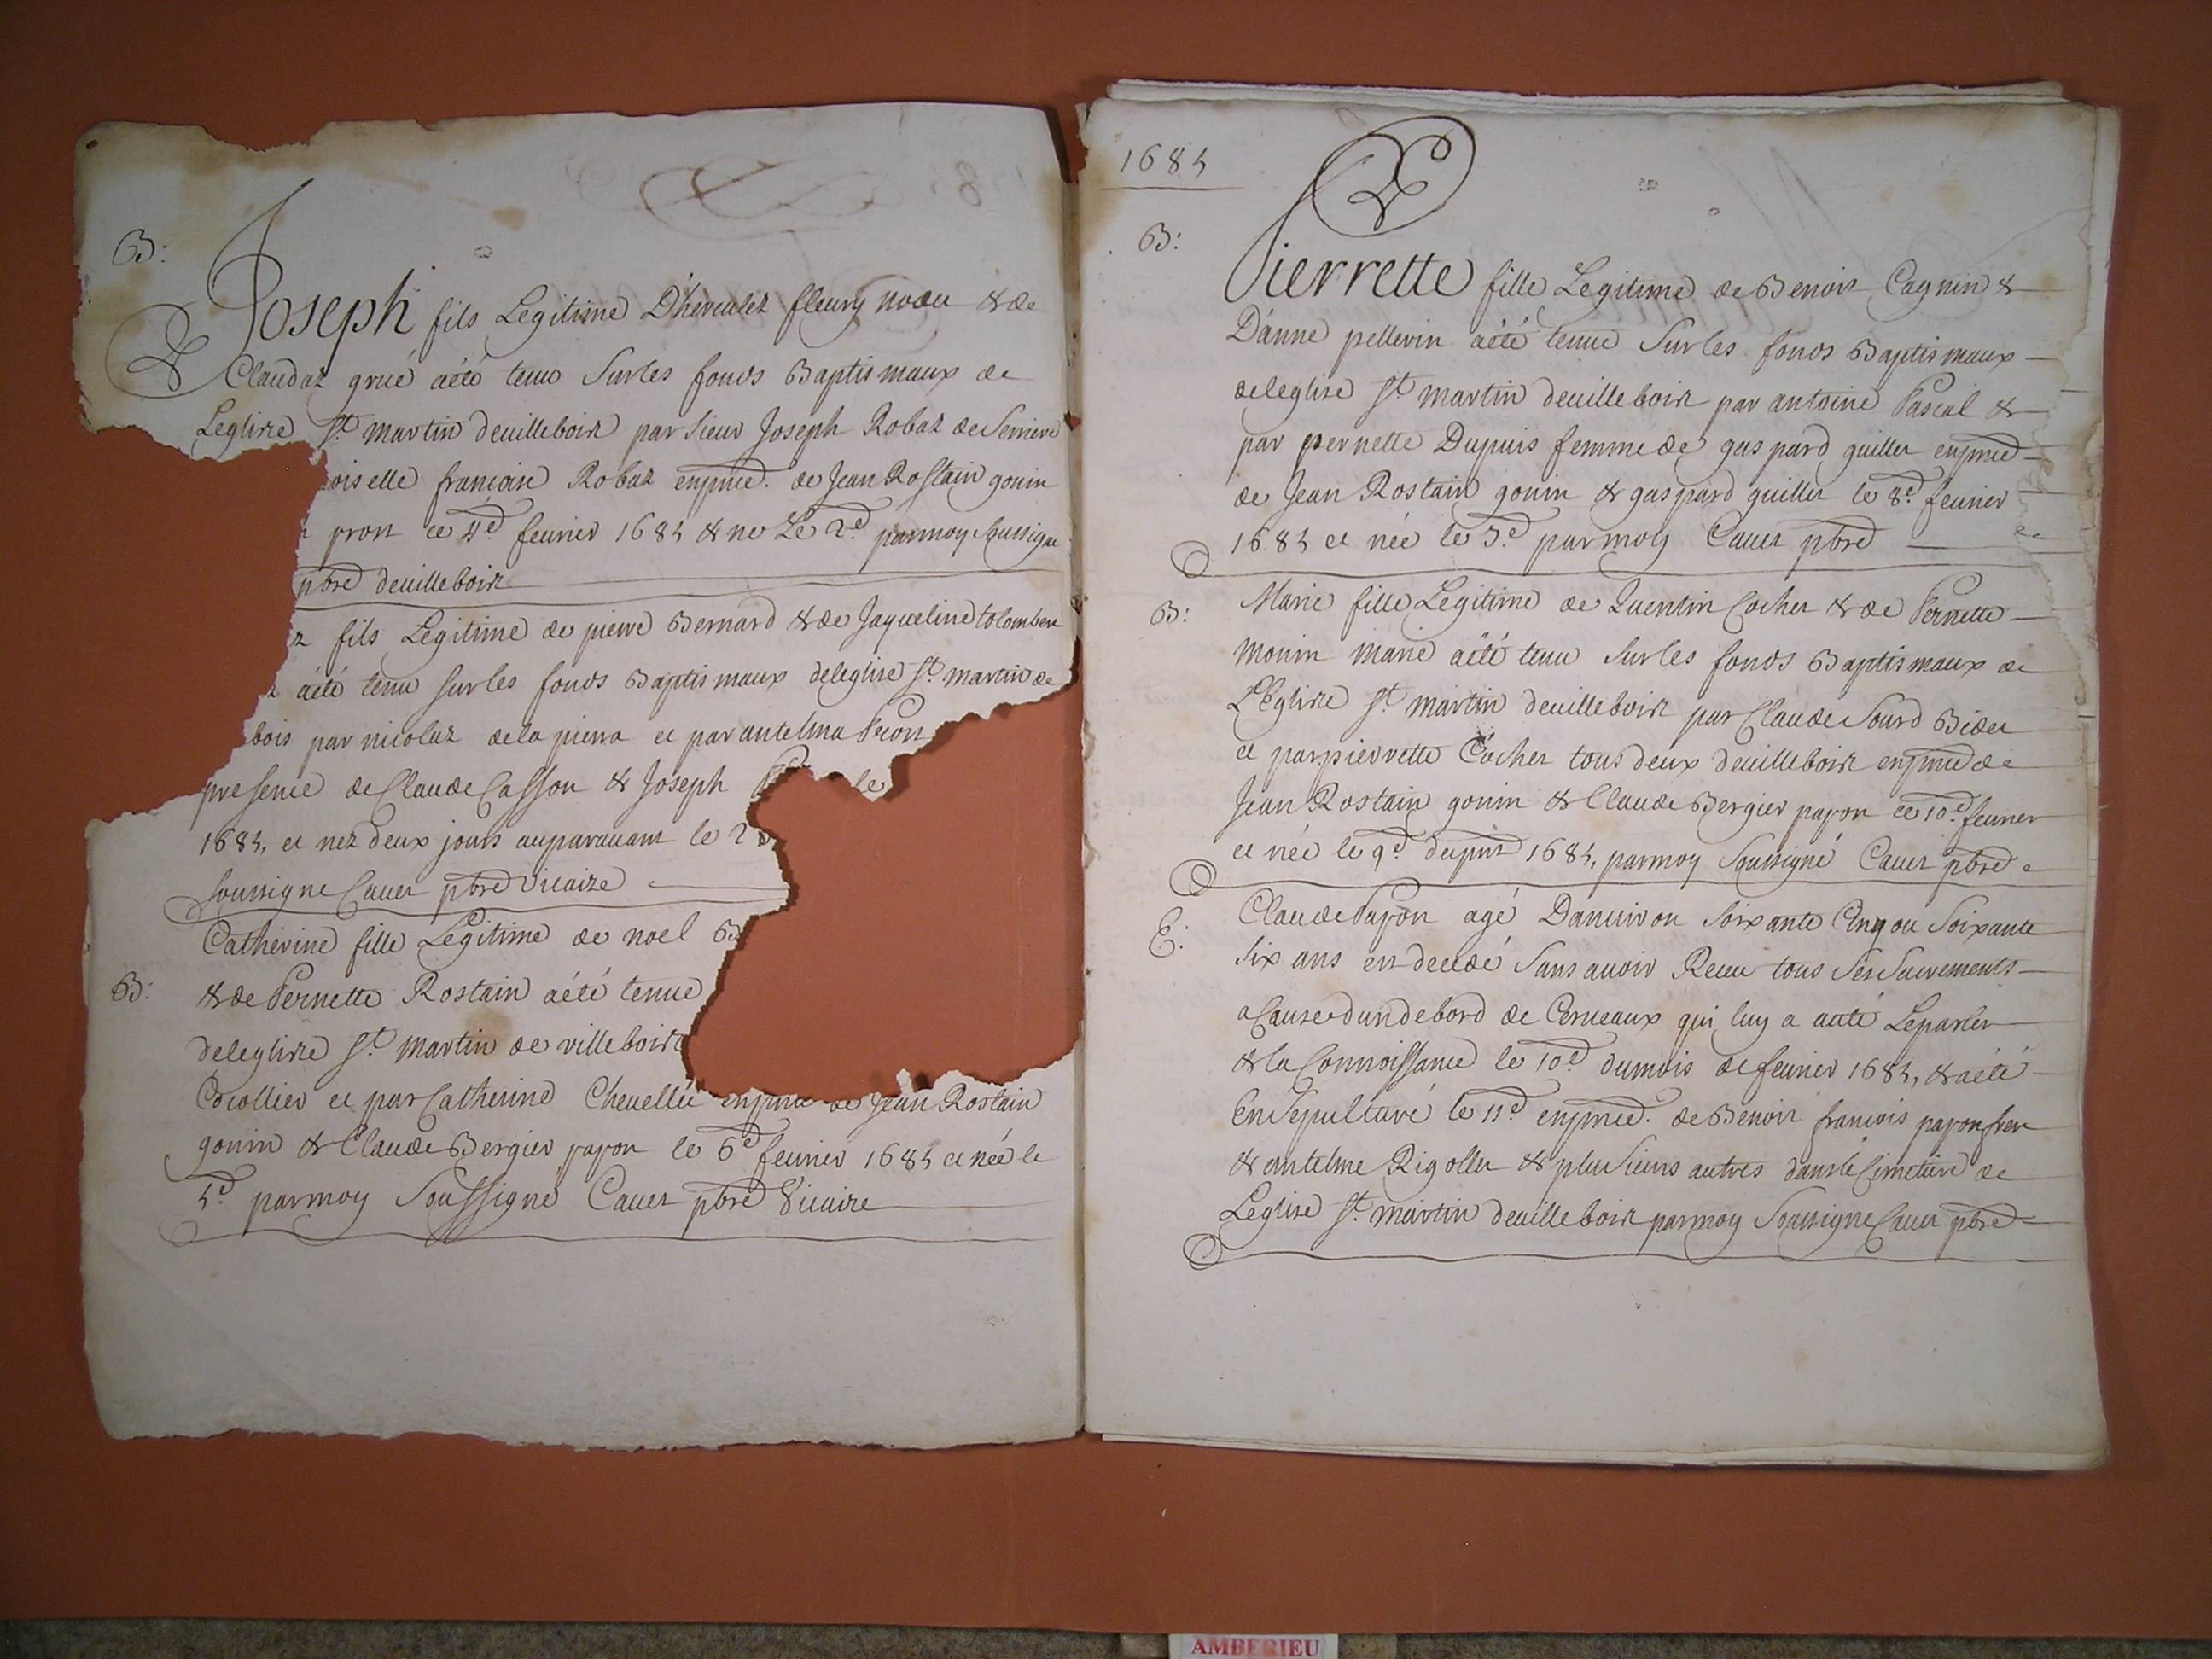 B:
Joseph fils Legitime D'herculez fleury nodu & de
Claudaz grué a été tenu Sur les fonds Baptismaux de
Leglize St martin deuilleboiz par Sieur Joseph Robaz de Serriere
oiselle francoise Robaz enpnce. de Jean Rostain gonin
pron ce 4e. feurier 1685 & ne Le 2d. parmoy Soussigne
pbre deuilleboiz
z fils Legitime de pierre Bernard & de Jaqueline colomben
a été tenu sur les fonds Baptismaux deleglise St. martin de
bois par nicolaz dela pierra et par antelma Peron
presence de Claude Casson & Joseph P le
1685, et nez deux jours auparauant le 2
soussigne Cauez pbre Vicaire
Catherine fille Legitime de noel B
B:
& de Pernette Rostain a été tenue
deleglize St. martin de villeboiz
Crollier et par Catherine Chevellu enpnce de Jean Rostain
gonin & Claude Bergier papon le 6e feurier 1685 et née le
5e. parmoy Soussigné Cauez pbre Vicaire
1685
B:
Pierrette fille Legitime de Benoit Cagnin &
D'anne pellerin a été tenue Sur les fonds Baptismaux
deleglise St martin deuilleboiz par antoine Pascal &
par pernette Dupuis femme de gaspard guiller enpnce
de Jean Rostain gonin & gaspard guiller le 8e. feurier
1685 et née le 5e. parmoy Cauez pbre
B:
Marie fille Legitime de Quentin Cocher & de Pernette
monin marie a été tenu Sur les fonds Baptismaux de
L'Eglize St. martin deuilleboiz par Claude Sourd Bider
et par pierrette Cocher tous deux deuilleboiz enpnce de
Jean Rostain gonin & Claude Bergier papon ce 10e. feurier
et née le 9e. dupnt 1685, parmoy Soussigné Cauez pbre
E:
Claude Papon agé Danuiron Soixante Cinq ou Soixante
Six ans est decedé Sans auoir Receu tous Ses Sacrements
a Cause dun debord de Cerueaux qui luy a auté Leparler
& la Connoissance le 10e. dumois de feurier 1685, & a été
Ensepulturé le 11e enpnce. de Benoit francois papon frere
& antelme Rigoller & plusieurs autres dans le Cimetiere de
Leglise St. martin deuilleboiz parmoy Soussigne Cauez pbre
AMBERIEU